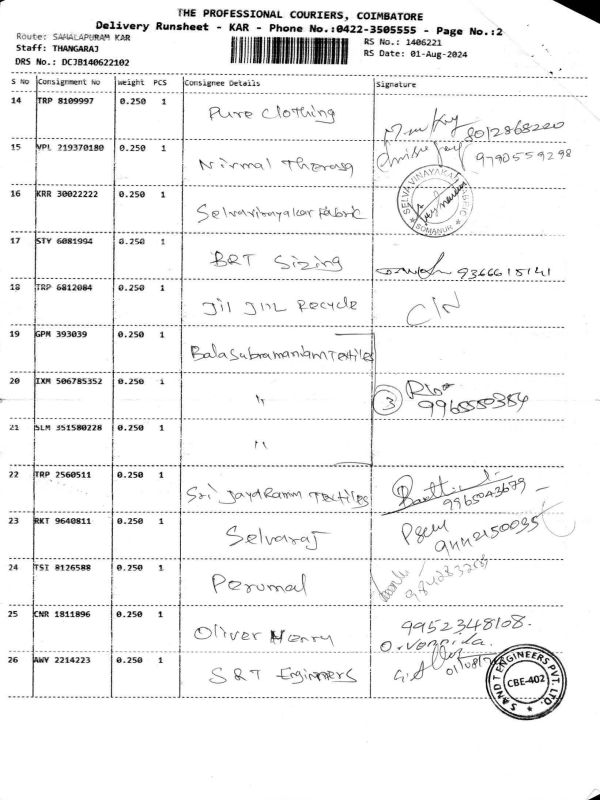 THE PROFESSIONAL COURIERS, COIMBATORE
Delivery Runsheet - KAR - Phone No.:0422-3505555 - Page No.:2
Route: SAMALAPURAM KAR
RS No.: 1406221
Staff: THANGARAJ
RS Date: 01-Aug-2024
DRS No.: DCJB140622102
S No Consignment No Weight PCS Consignee Details Signature
14 TRP 8109997 0.250 1 Pure Clothing
8012868220
15 VPL 219370180 0.250 1 Nirmal Therasa 9790559298
16 KRR 30022222 0.250 1 Selvavinayakar Fabric
SELVAVINAYAKAR FABRIC
SOMANUR
17 STY 6081994 0.250 1 BRT Sizing 9366615141
18 TRP 6812084 0.250 1 Jil Jill Recycle C/N
19 GPM 393039 0.250 1 Balasubramaniam Textiles
20 IXM 506785352 0.250 1 " 3
9965550354
21 SLM 351580228 0.250 1 "
22 TRP 2560511 0.250 1 Sri Jaya Ramm Textiles
9965043679
23 RKT 9640811 0.250 1 Selvaraj
9442150035
24 TSI 8126588 0.250 1 Perumal
25 CNR 1811896 0.250 1 Oliver Henry 9952348108.
26 AWY 2214223 0.250 1 S&T Engineers
S AND T ENGINEERS PVT. LTD.
CBE-402